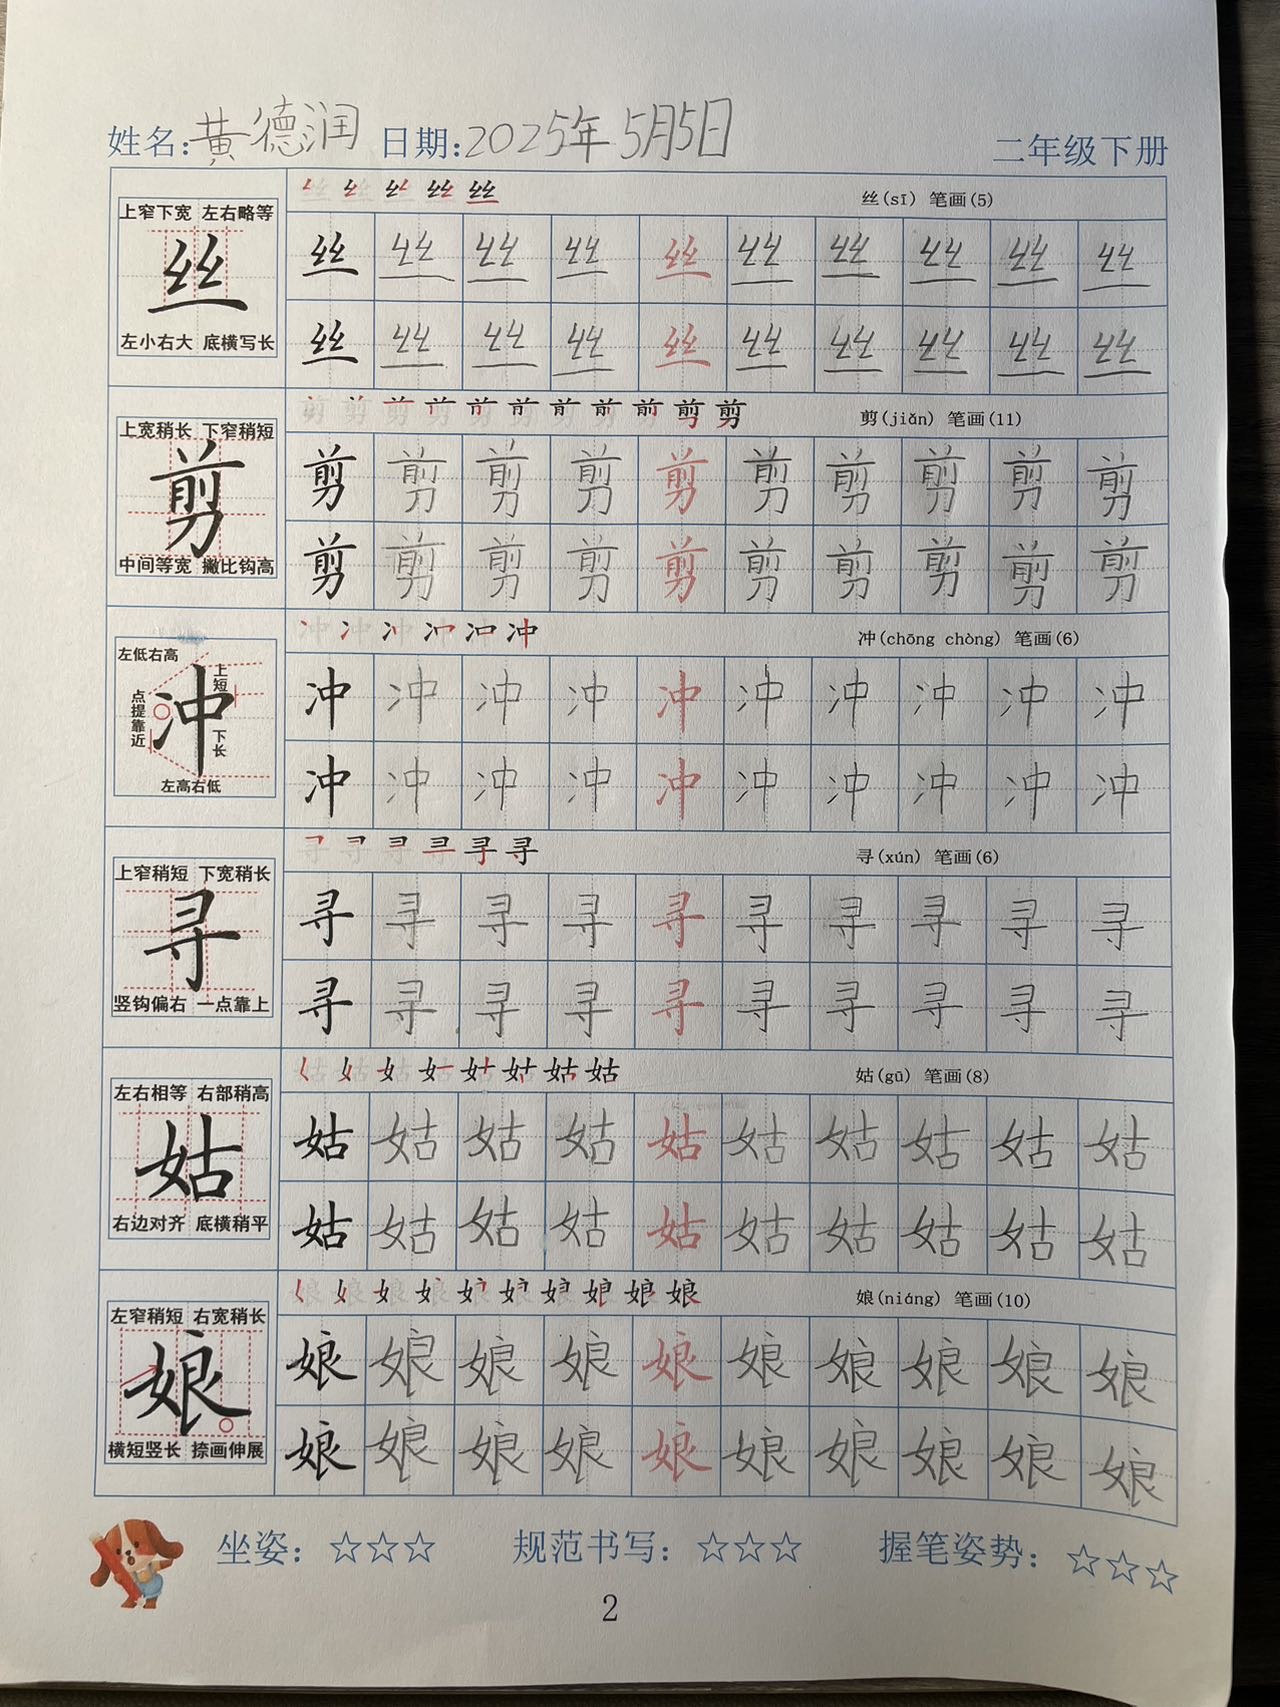 姓名：黄德润 日期：2025年5月5日 二年级下册
丝(sī) 笔画(5)
上窄下宽 左右略等
丝
左小右大 底横写长
丝 丝 丝 丝 丝 丝 丝 丝 丝 丝
丝 丝 丝 丝 丝 丝 丝 丝 丝 丝
剪(jiǎn) 笔画(11)
上宽稍长 下窄稍短
剪
中间等宽 撇比钩高
剪 剪 剪 剪 剪 剪 剪 剪 剪 剪
剪 剪 剪 剪 剪 剪 剪 剪 剪 剪
冲(chōng chòng) 笔画(6)
左低右高
上短
点提靠近
冲
下长
左高右低
冲 冲 冲 冲 冲 冲 冲 冲 冲 冲
冲 冲 冲 冲 冲 冲 冲 冲 冲 冲
寻(xún) 笔画(6)
上窄稍短 下宽稍长
寻
竖钩偏右 一点靠上
寻 寻 寻 寻 寻 寻 寻 寻 寻 寻
寻 寻 寻 寻 寻 寻 寻 寻 寻 寻
姑(gū) 笔画(8)
左右相等 右部稍高
姑
右边对齐 底横稍平
姑 姑 姑 姑 姑 姑 姑 姑 姑 姑
姑 姑 姑 姑 姑 姑 姑 姑 姑 姑
娘(niáng) 笔画(10)
左窄稍短 右宽稍长
娘
横短竖长 捺画伸展
娘 娘 娘 娘 娘 娘 娘 娘 娘 娘
娘 娘 娘 娘 娘 娘 娘 娘 娘 娘
坐姿：☆☆☆ 规范书写：☆☆☆ 握笔姿势：☆☆☆
2